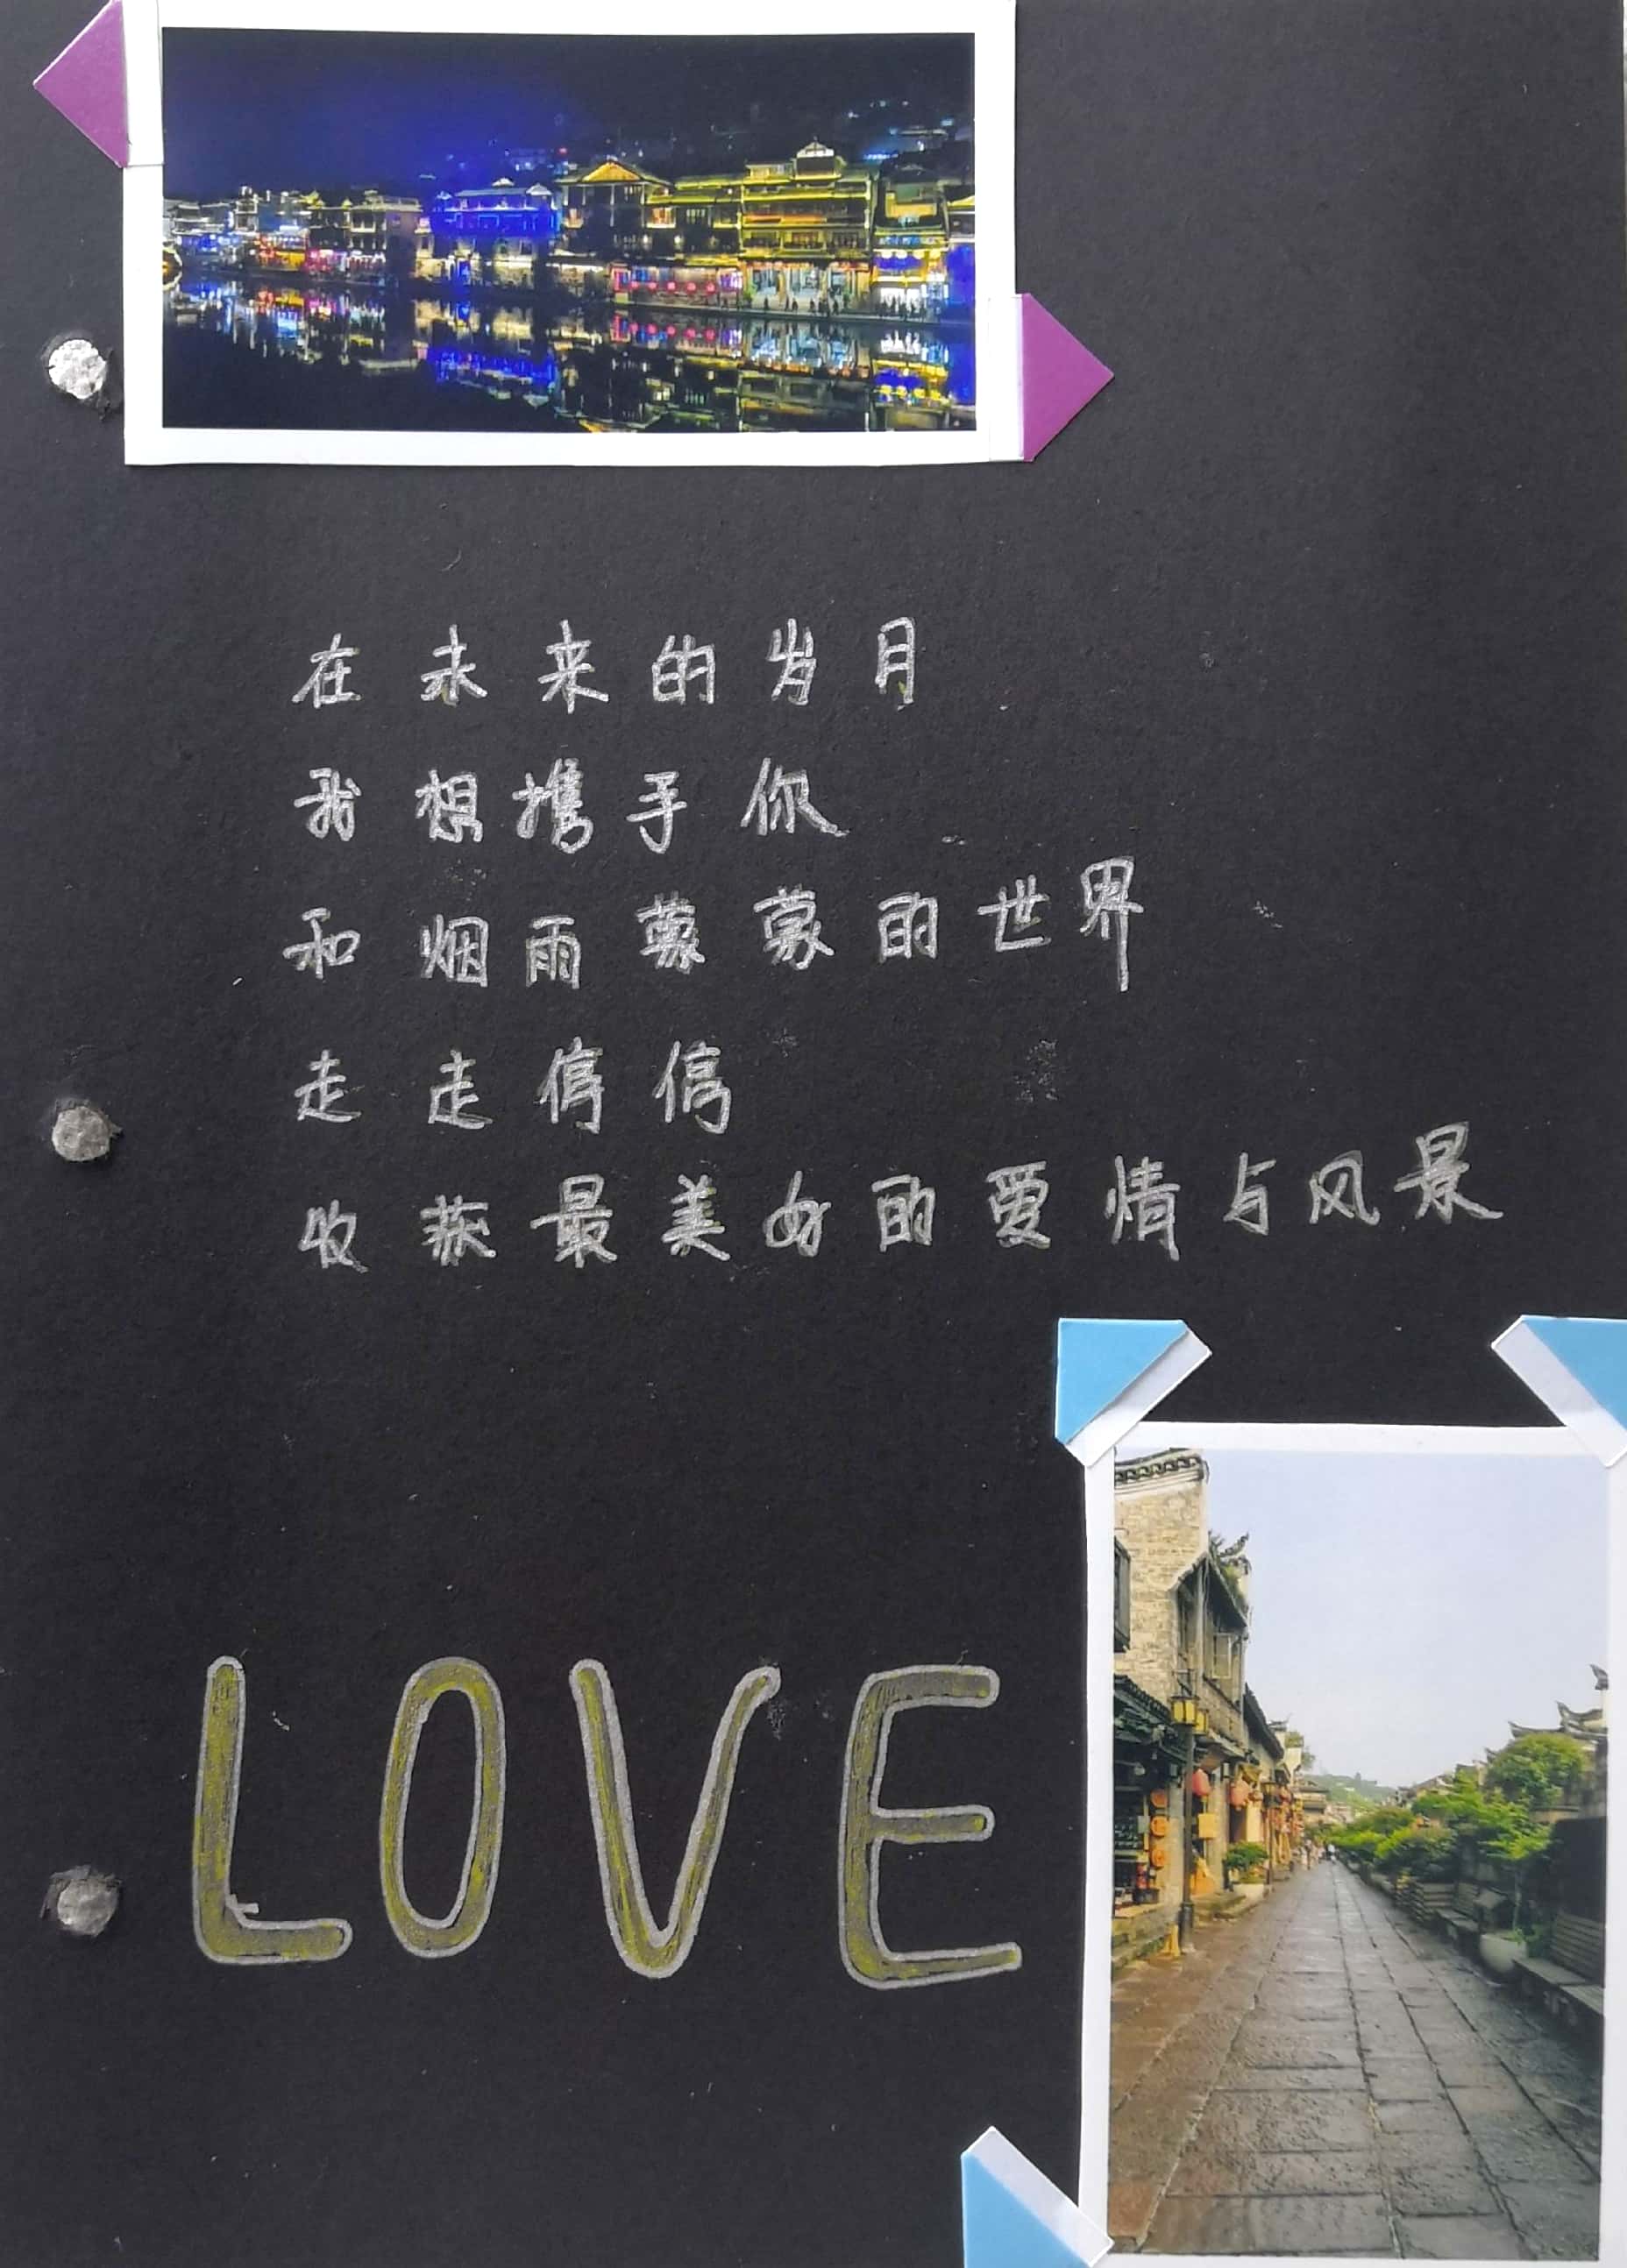 在未来的岁月
我想携手你
和烟雨蒙蒙的世界
走走停停
收获最美好的爱情与风景
LOVE